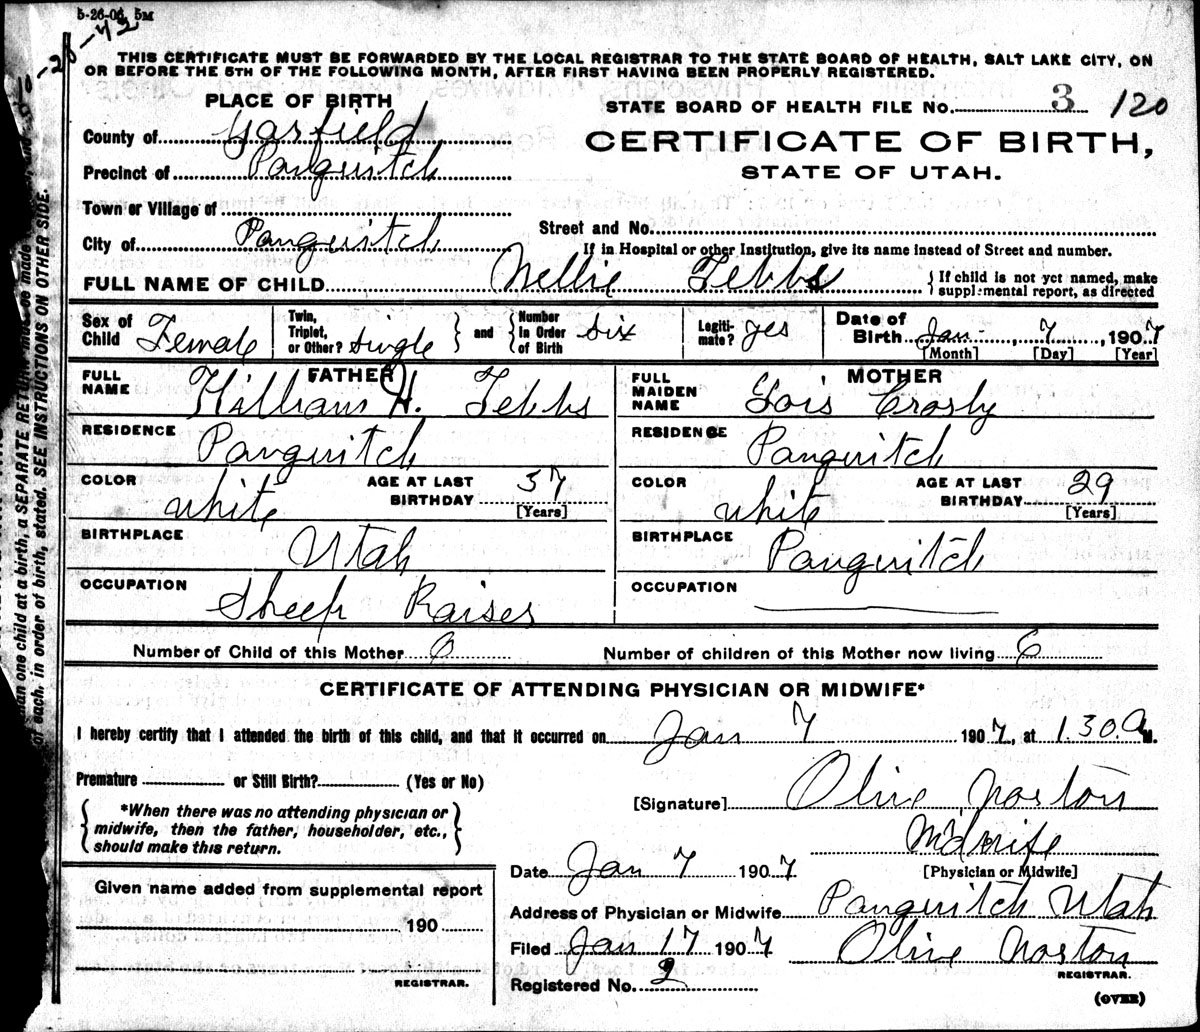 5-26-06 5M
THIS CERTIFICATE MUST BE FORWARDED BY THE LOCAL REGISTRAR TO THE STATE BOARD OF HEALTH, SALT LAKE CITY, ON
OR BEFORE THE 5TH OF THE FOLLOWING MONTH, AFTER FIRST HAVING BEEN PROPERLY REGISTERED.
PLACE OF BIRTH
STATE BOARD OF HEALTH FILE No. 3 120
County of Garfield
CERTIFICATE OF BIRTH,
Precinct of Panguitch
STATE OF UTAH.
Town or Village of
Street and No.
City of Panguitch
If in Hospital or other Institution, give its name instead of Street and number.
FULL NAME OF CHILD Nellie Tebbs
{ If child is not yet named, make
supplemental report, as directed
Sex of Child Female
Twin, Triplet, or Other? single } and { Number In Order of Birth six
Legiti- mate? yes
Date of Birth Jan 7, 1907
[Month] [Day] [Year]
FATHER
FULL NAME William H. Tebbs
MOTHER
FULL MAIDEN NAME Lois Crosby
RESIDENCE Panguitch
RESIDENCE Panguitch
COLOR white AGE AT LAST BIRTHDAY 37 [Years]
COLOR white AGE AT LAST BIRTHDAY 29 [Years]
BIRTHPLACE Utah
BIRTHPLACE Panguitch
OCCUPATION Sheep Raiser
OCCUPATION
Number of Child of this Mother 6 Number of children of this Mother now living 6
CERTIFICATE OF ATTENDING PHYSICIAN OR MIDWIFE*
I hereby certify that I attended the birth of this child, and that it occurred on Jan 7 1907, at 1.30 A M.
Premature or Still Birth? (Yes or No)
[Signature] Olive Norton
{ *When there was no attending physician or
midwife, then the father, householder, etc.,
should make this return. }
Midwife
[Physician or Midwife]
Date Jan 7 1907
Given name added from supplemental report
190
REGISTRAR.
Address of Physician or Midwife Panguitch Utah
Filed Jan 17 1907 Olive Norton
REGISTRAR.
Registered No. 2
(OVER)
than one child at a birth, a SEPARATE RETURN must be made
of each, in order of birth, stated. SEE INSTRUCTIONS ON OTHER SIDE.